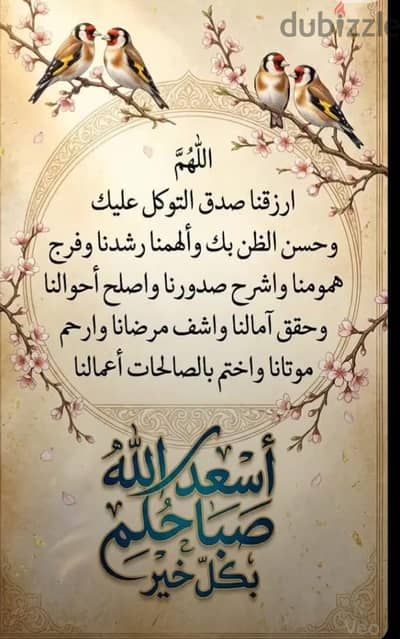 dubizzle
اللّٰهُمَّ
ارزقنا صدق التوكل عليك
وحسن الظن بك وألهمنا رشدنا وفرج
همومنا واشرح صدورنا واصلح أحوالنا
وحقق آمالنا واشف مرضانا وارحم
موتانا واختم بالصالحات أعمالنا
أسعد الله
صباحكم
بكل خير
Veo